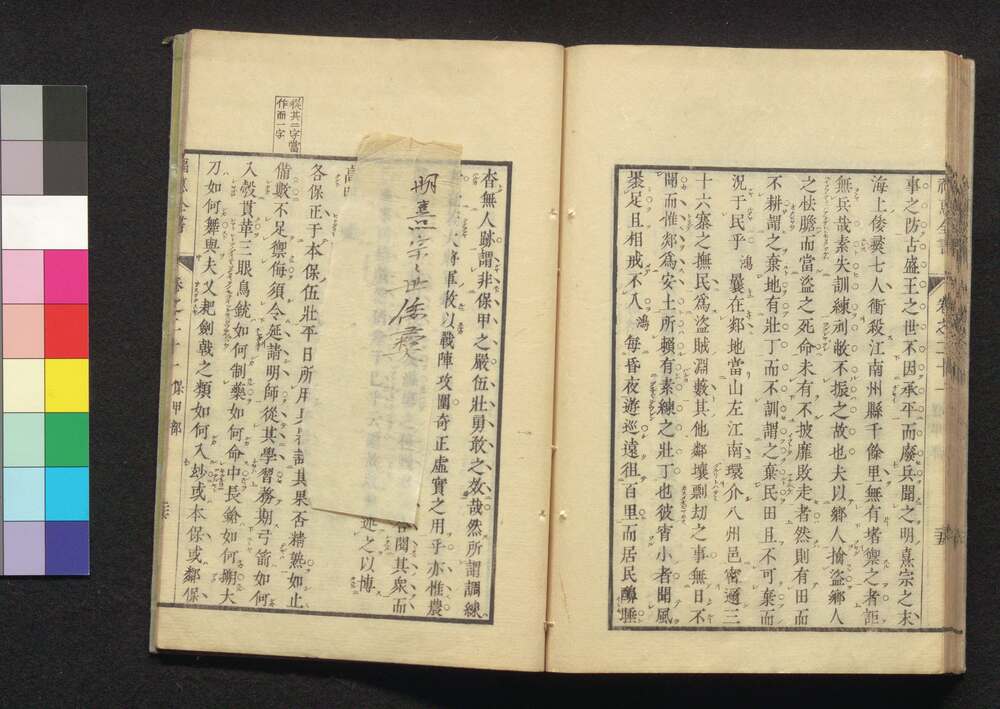 事之防占盛王之世不因承平而廢兵聞之明熹宗之末
海上倭夥七人衝殺江南州縣千餘里無有堵禦之者詎
無兵哉素失訓練利敝不振之故也夫以鄉人擒盜鄉人
之怯膽而當盜之死命未有不披靡敗走者然則有田而
不耕謂之棄地有壯丁而不訓謂之棄民田且不可棄而
況于民乎鴻曩在郯地當山左江南環介八州邑密邇三
十六寨之撫民爲盜賊淵藪其他鄰壤剽劫之事無日不
聞而惟郯爲安土所頼有素練之壯丁也彼宵小者聞風
褁足且相戒不入鴻每昏夜遊巡遠徂百里而居民酣睡
卷之二十一
從其二字當
作而一字
明熹宗之世倭夥
杳無人跡謂非保甲之嚴伍壯勇敢之效哉然所謂調練
大將軍敎以戰陣攻圍奇正虛實之用乎亦惟農
閱其衆而
述之以博
各保正于本保伍壯平日所用
其果否精熟如止
僃數不足禦侮須令延請明師從其學習務期弓箭如何
入彀貫革三眼鳥銃如何制藥如何命中長鎗如何擲大
刀如何舞與夫乂耙劍戟之類如何入玅或本保或鄰保
福惠全書
卷之二十一
保甲部